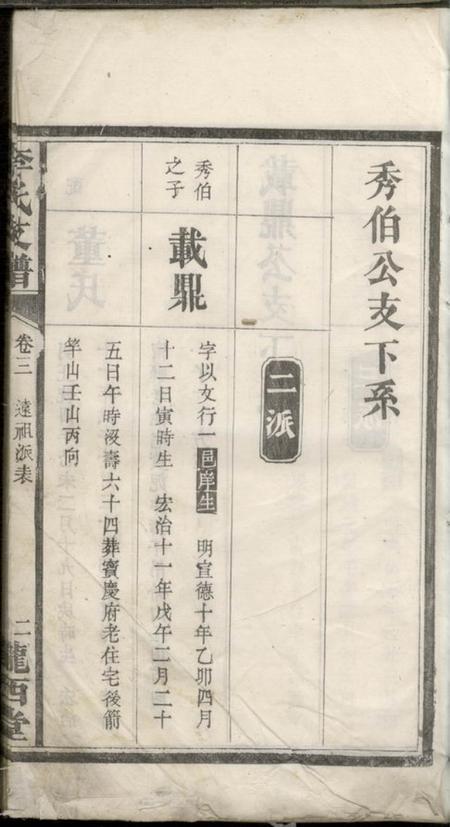 秀伯公支下系
二派
秀伯
之子
載鼎
字以文行一邑庠生 明宣德十年乙卯四月
十二日寅時生 宏治十一年戊午二月二十
五日午時沒壽六十四葬寳慶府老住宅後箭
竿山壬山丙向
李氏支譜
卷三 遠祖派表
二
隴西堂